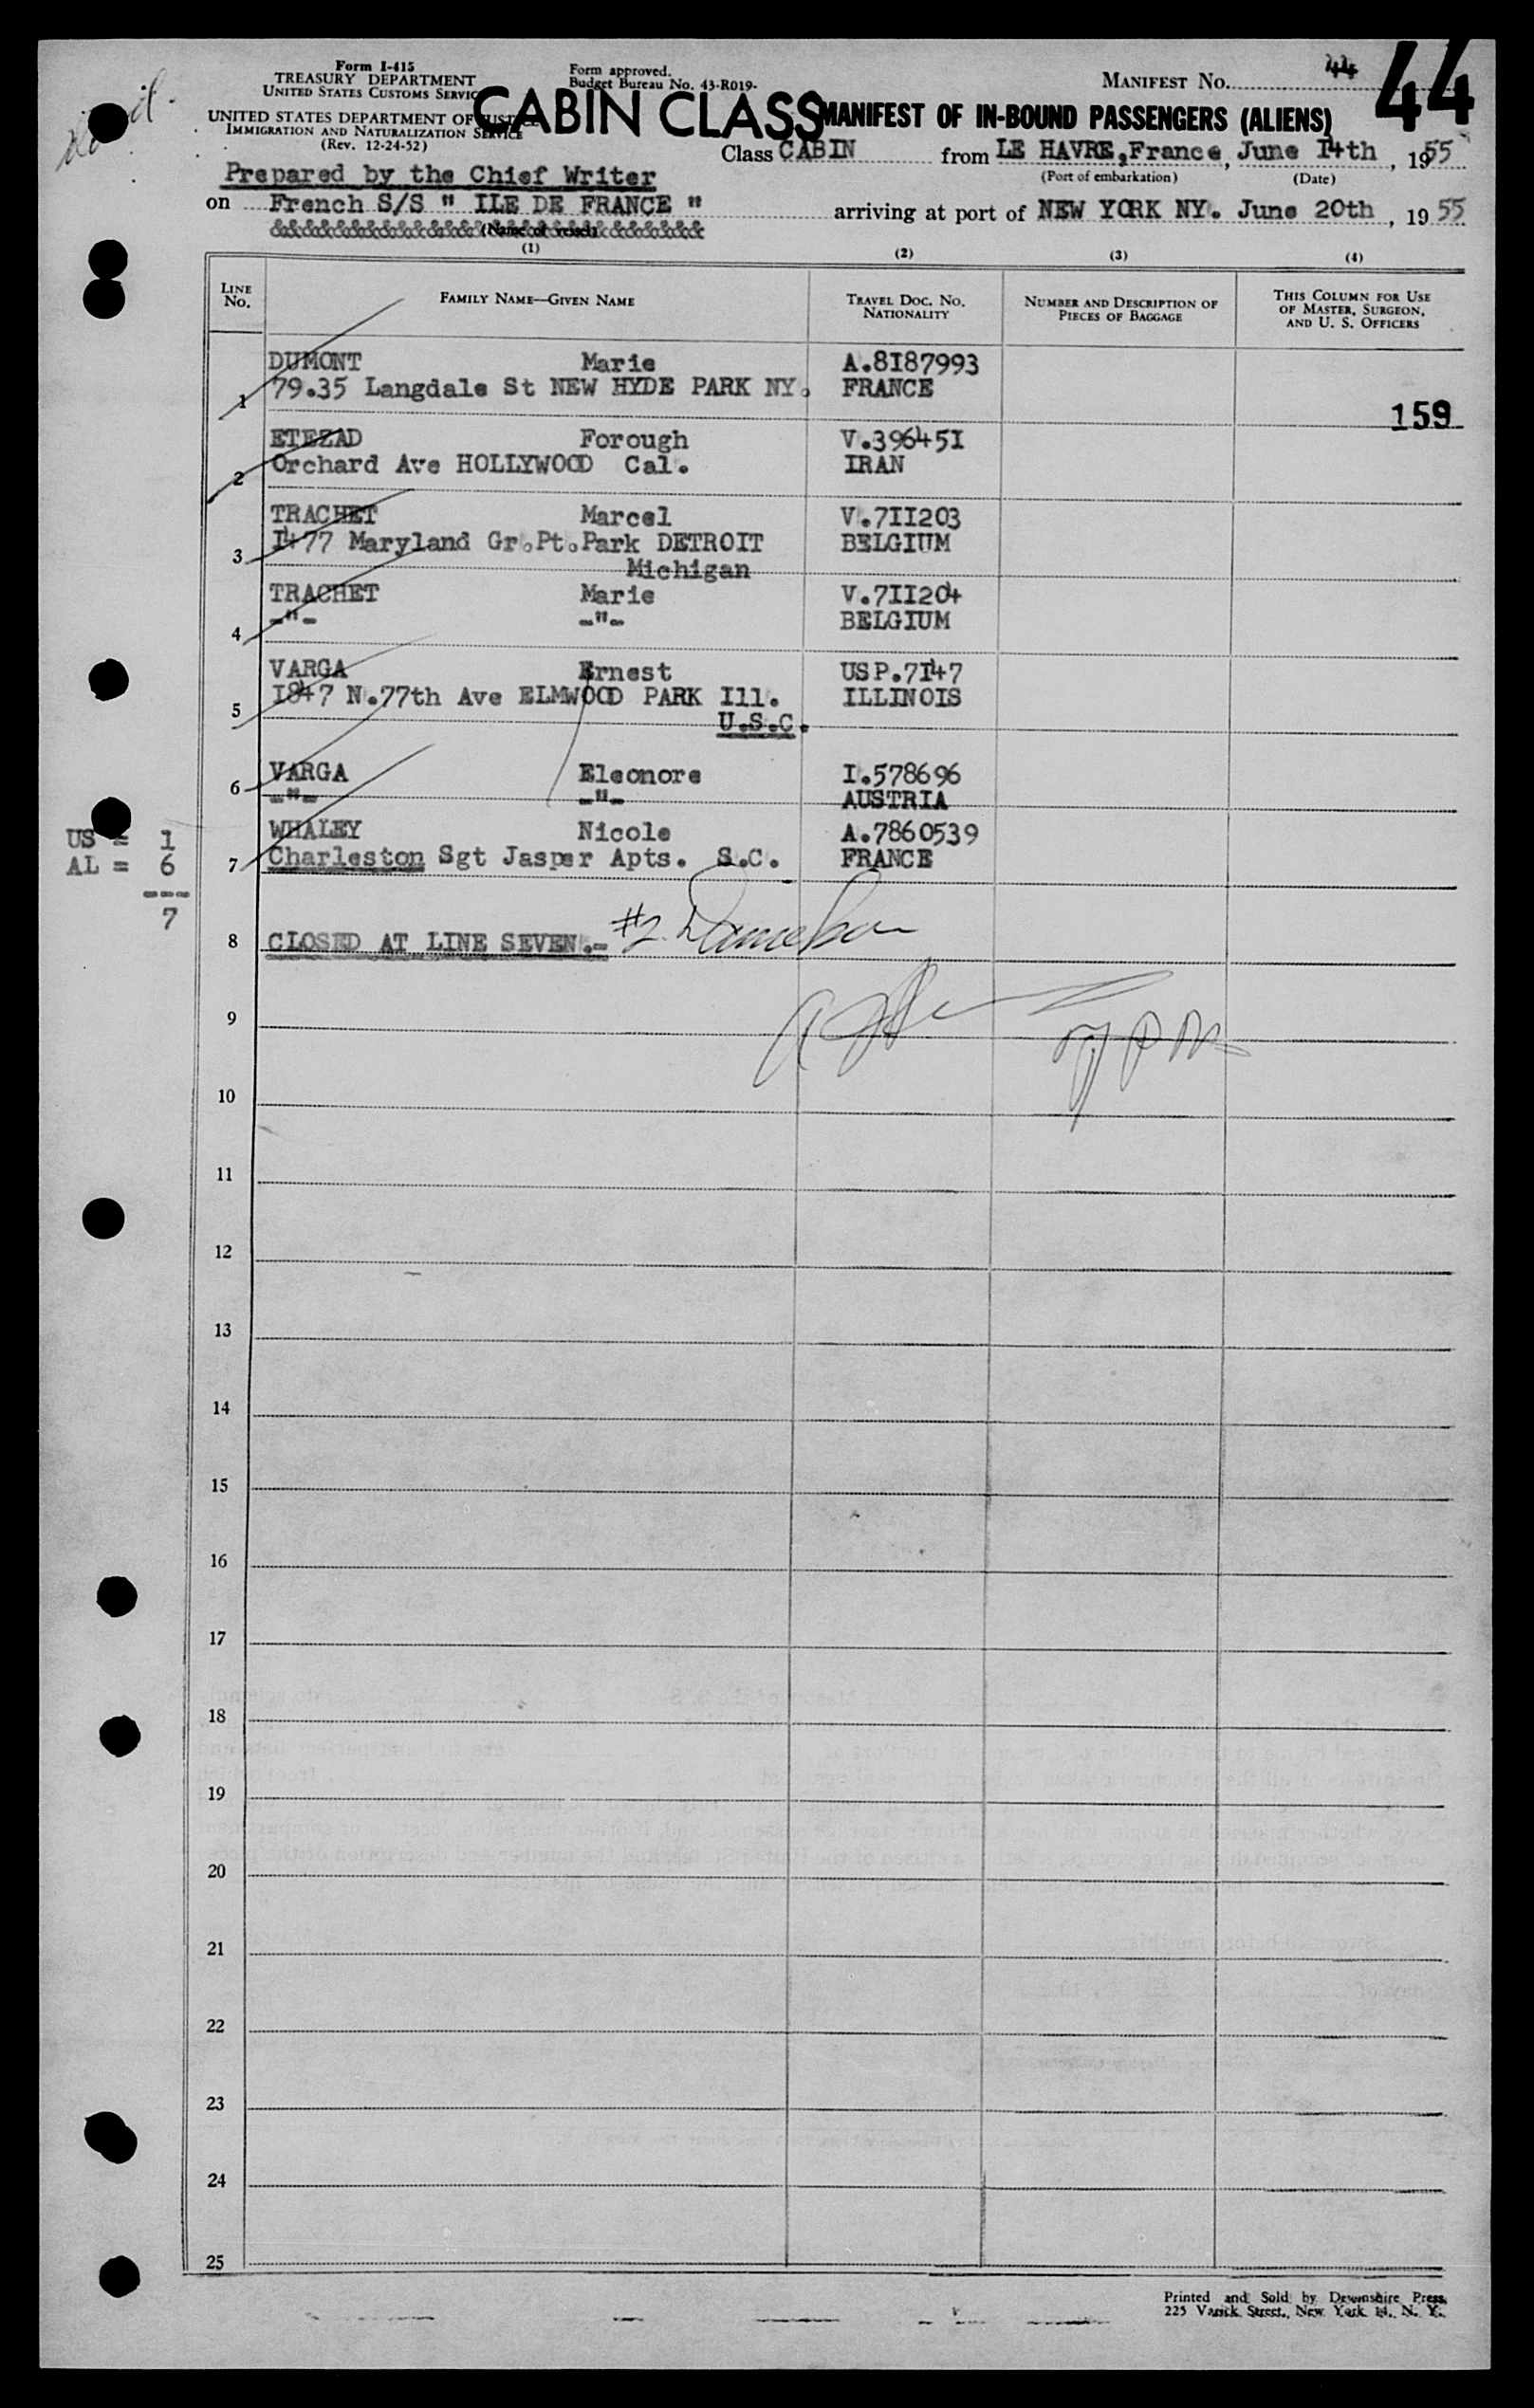 Form I-415
TREASURY DEPARTMENT
UNITED STATES CUSTOMS SERVICE
UNITED STATES DEPARTMENT OF JUSTICE
IMMIGRATION AND NATURALIZATION SERVICE
(Rev. 12-24-52)
Form approved.
Budget Bureau No. 43-R019.
MANIFEST No. 44
44
CABIN CLASS
MANIFEST OF IN-BOUND PASSENGERS (ALIENS)
Class CABIN from LE HAVRE,France, June 14th, 1955
(Port of embarkation) (Date)
Prepared by the Chief Writer
on French S/S " ILE DE FRANCE " arriving at port of NEW YORK NY. June 20th, 1955
(Name of vessel)
(1) (2) (3) (4)
LINE No. FAMILY NAME—GIVEN NAME TRAVEL DOC. NO. NATIONALITY NUMBER AND DESCRIPTION OF PIECES OF BAGGAGE THIS COLUMN FOR USE OF MASTER, SURGEON, AND U. S. OFFICERS
DUMONT Marie A.8187993
1 79.35 Langdale St NEW HYDE PARK NY. FRANCE
159
ETEZAD Forough V.39645I
2 Orchard Ave HOLLYWOOD Cal. IRAN
TRACHET Marcel V.7II203
3 I477 Maryland Gr.Pt.Park DETROIT BELGIUM
Michigan
TRACHET Marie V.7II204
4 -"- -"- BELGIUM
VARGA Ernest USP.7I47
5 I847 N.77th Ave ELMWOOD PARK Ill. ILLINOIS
U.S.C.
VARGA Eleonore I.578696
6 -"- -"- AUSTRIA
WHALEY Nicole A.7860539
7 Charleston Sgt Jasper Apts. S.C. FRANCE
US = 1
AL = 6
---
7
8 CLOSED AT LINE SEVEN.- #2
9
10
11
12
13
14
15
16
17
18
19
20
21
22
23
24
25
Printed and Sold by Dewinshire Press,
225 Varick Street, New York 14, N. Y.